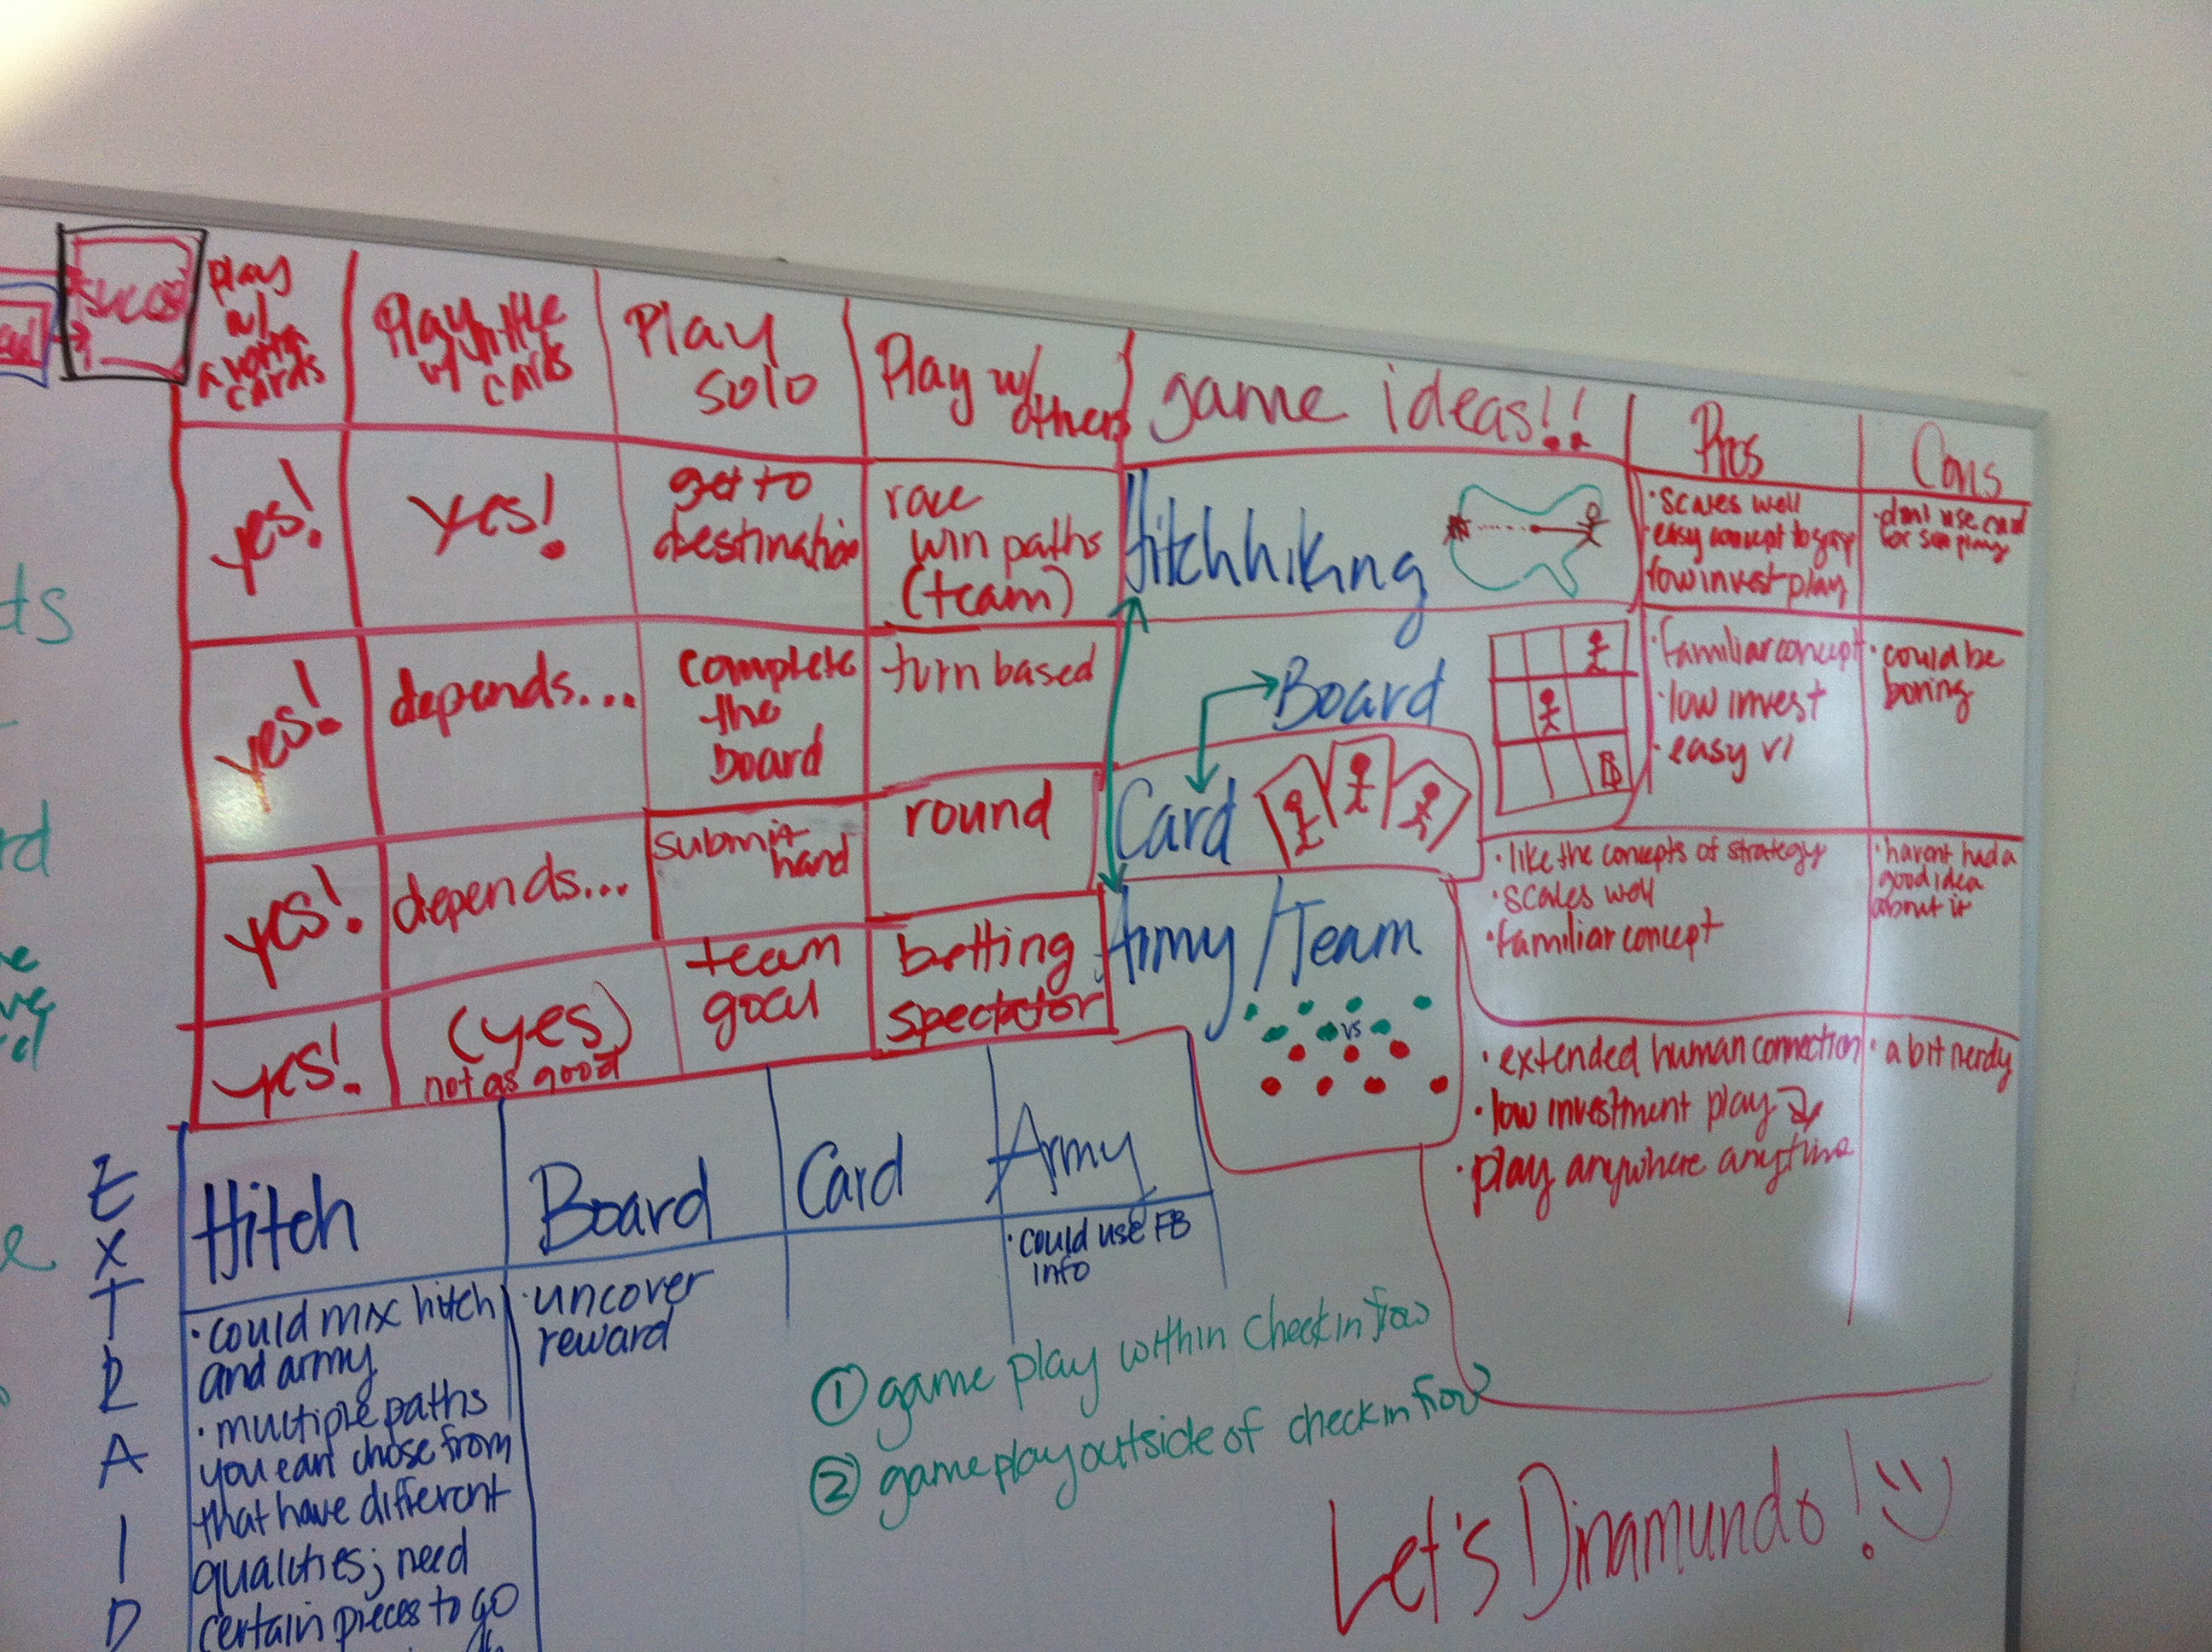 success
play
w/
a lot of
cards
Play little
w/ cards
Play
solo
Play w/
others
game ideas!!
Pros
Cons
yes!
yes!
get to
destination
race
win paths
(team)
Hitchhiking
• scales well
• easy concept to grasp
low invest play
• don't use card
for solo play
yes!
depends...
complete
the
board
turn based
Board
• Familiar concept
• low invest
• easy v1
• could be
boring
yes!
depends...
submit
hand
round
Card
• like the concepts of strategy
• scales well
• familiar concept
• havent had a
good idea
about it
yes!
(yes)
not as good
team
goal
betting
spectator
Army/Team
vs
• extended human connection
• low investment play
• play anywhere anytime
• a bit nerdy
E
X
T
R
A
I
D
Hitch
Board
Card
Army
• could mix hitch
and army
• multiple paths
you can chose from
that have different
qualities; need
certain pieces to go
• uncover
reward
• could use FB
info
① game play within check in flow
② game play outside of check in flow
Let's Dinamundo!
ds
rd
e